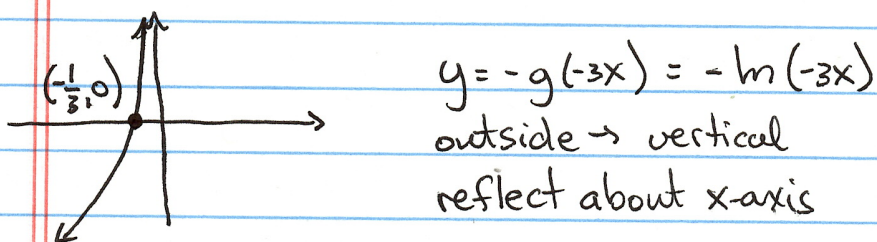 (-1/3, 0)
y = -g(-3x) = -ln(-3x)
outside → vertical
reflect about x-axis